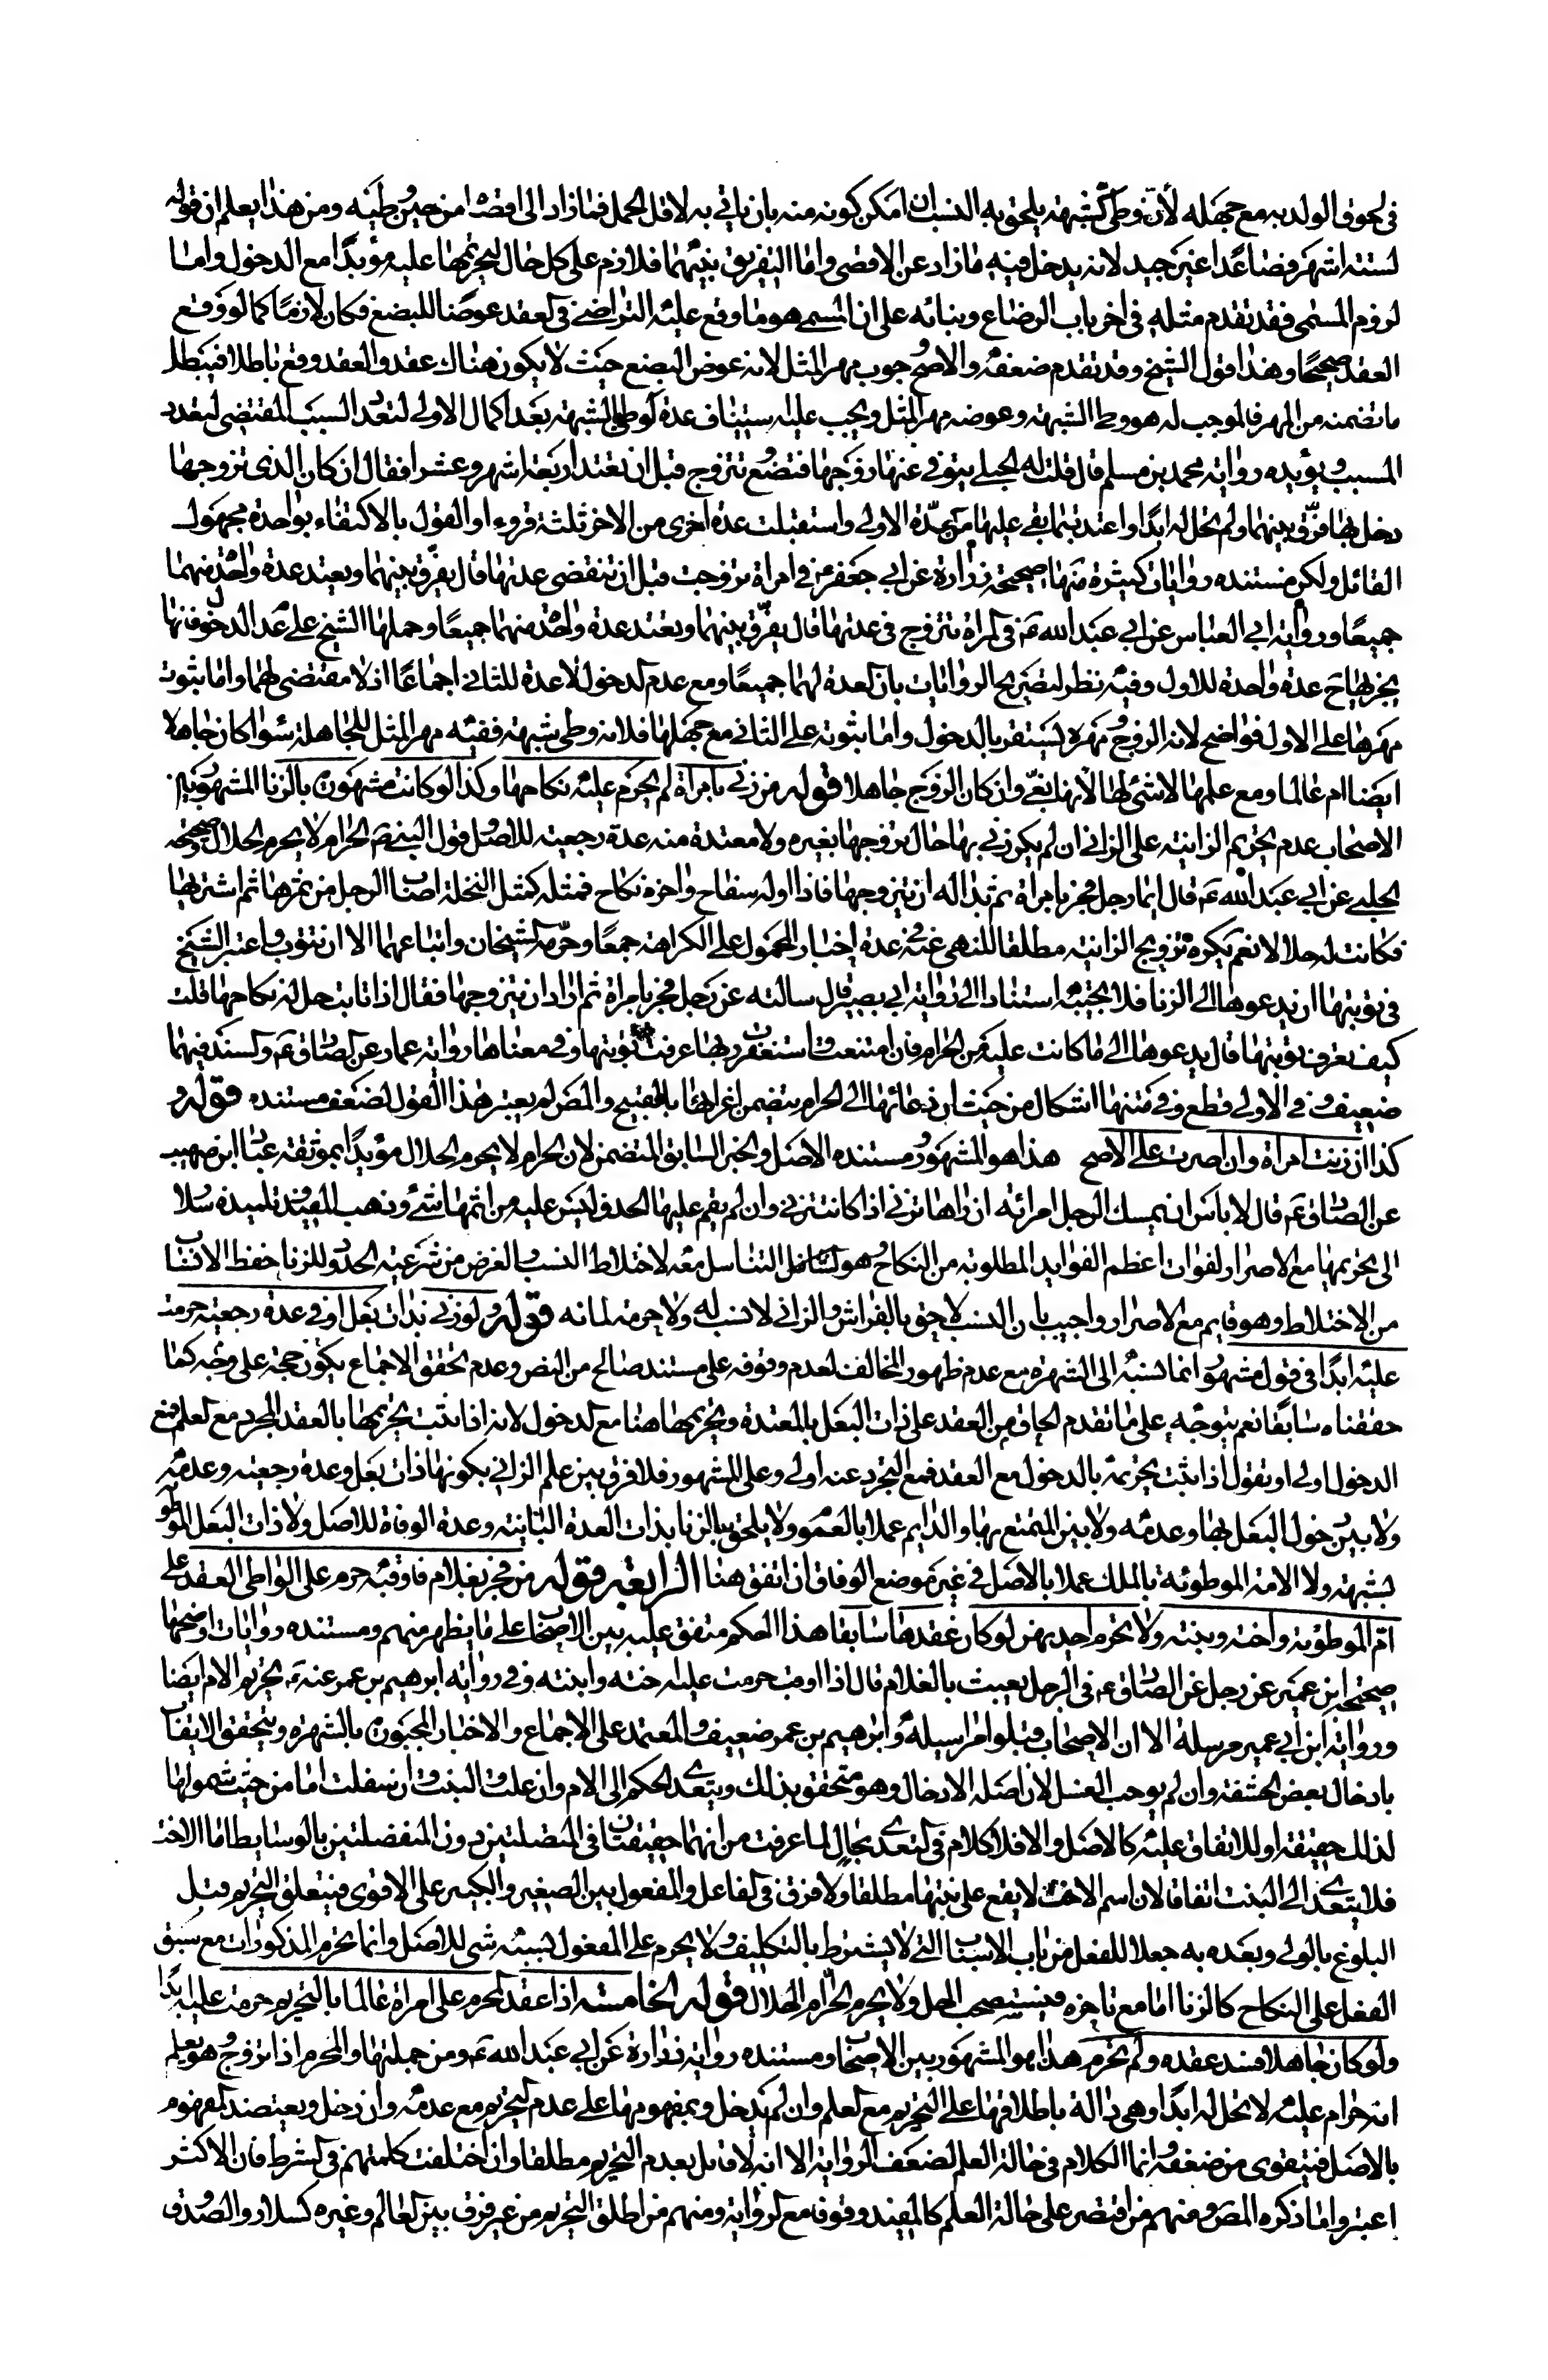 فى لحوق الولد به مع جهله لأنه وطئ شبهة يلحق به النسب ان امكن كونه منه بان ياتي به لاقل الحمل فما زاد الى اقصاه من حين وطيه ومن هذا يعلم ان قوله
لستة اشهر فصاعدا غير جيد لانه يدخل فيه ما زاد عن الاقصى واما التفريق بينهما فلازم على كل حال لتحريمها عليه مؤبدا مع الدخول واما
لزوم المسمى فقد تقدم مثله في اخر باب الرضاع وبنائه على ان المسمى هو ما وقع عليه التراضي في العقد عوضا للبضع فكان لازما كما لو وقع
العقد صحيحا وهذا قول الشيخ وقد تقدم ضعفه والاصح وجوب مهر المثل لانه عوض البضع حيث لا يكون هناك عقد والعقد وقع باطلا فيبطل
ما تضمنه من المهر فالموجب له هو وطى الشبهة وعوضه مهر المثل ويجب عليه ستيناف عدة لوطى الشبهة بعد اكمال الاولى لتعدد السبب المقتضى لتعدد
المسبب ويؤيده رواية محمد بن مسلم قال قلت له الحبلى يتوفى عنها زوجها فتضع وتتزوج قبل ان تعتد اربعة اشهر وعشرا فقال ان كان الذى تزوجها
دخل بها فرق بينهما ولم تحل له ابدا واعتدت بما بقى عليها من عدة الاولى واستقبلت عدة اخرى من الاخر ثلثة قروء والقول بالاكتفاء بواحدة مجهول
القائل ولكن مستنده روايات كثيرة منها صحيحة زرارة عن ابى جعفر ع في امراة تزوجت قبل ان تنقضى عدتها قال يفرق بينهما ويعتد عدة واحدة منهما
جميعا ورواية ابى العباس عن ابى عبد الله ع في المراة تتزوج فى عدتها قال يفرق بينهما وتعتد عدة واحدة منهما جميعا وحملها الشيخ على عدم الدخول فانها
يجزيها ح عدة واحدة للاول وفيه نظر لتصريح الروايات بان العدة لهما جميعا ومع عدم الدخول لا عدة للثاني اجماعا اذ لا مقتضى لها واما ثبوت
مهرها على الاول فواضح لانه الزوج ومهره يستقر بالدخول واما ثبوته على الثاني مع جهلها فلانه وطى شبهة ففيه مهر المثل للجاهلة سواء كان جاهلا
ايضا ام عالما ومع علمها لا شئ لها لانها بغى وان كان الزوج جاهلا قوله من زنى بامراة لم يحرم عليه نكاحها وكذا لو كانت مشهورة بالزنا المشهور بين
الاصحاب عدم تحريم الزانية على الزاني ان لم يكن زنى بها حال تزوجها بغيره ولا معتدة منه عدة رجعية للاصل وقول النبي ص الحرام لا يحرم الحلال وصحيحة
الحلبي عن ابي عبد الله ع قال ايما رجل فجر بامراة ثم بدا له ان يتزوجها فاذا اوله سفاح واخره نكاح فمثله كمثل النخلة اصاب الرجل من ثمرها ثم اشتريها
فكانت له حلالا نعم يكره تزويج الزانية مطلقا للنهى عنه في عدة اخبار المحمول على الكراهة جمعا وحرمه الشيخان واتباعهما الا ان تتوب واعتبر الشيخ
في توبتها ان يدعوها الى الزنا فلا تجيبه استنادا الى رواية ابى بصير قال سالته عن رجل فجر بامراة ثم اراد ان يتزوجها فقال اذا تابت حل له نكاحها قلت
كيف يعرف توبتها قال يدعوها الى ما كانت عليه من الحرام فان امتنعت واستغفرت ربها عرفت توبتها وفي معناها رواية عمار عن الصادق ع والسند فيهما
ضعيف وفي الاولى قطع وفي متنها اشكال من حيث ان دعائها الى الحرام يتضمن اغرائها بالقبيح والمص لم يعتبر هذا القول لضعف مستنده قوله و
كذا ان زنت امراة وان اصرت على الاصح هذا هو المشهور ومستنده الاصل والخبر السابق المتضمن لان الحرام لا يحرم الحلال مؤيدا بموثقة عباد ابن صهيب
عن الصادق ع قال لا باس ان يمسك الرجل امرائه ان راها تزنى اذا كانت تزنى وان لم يقم عليها الحد فليس عليه من اثمها شئ وذهب المفيد وتلميذه سلار
الى تحريمها مع الاصرار لفوات اعظم الفوايد المطلوبة من النكاح وهو التناسل معه لاختلاط النسب والغرض من شرعية الحد والزنا حفظ الانساب
من الاختلاط وهو قايم مع الاصرار واجيب بان النسب لاحق بالفراش والزاني لا نسب له ولا حرمة لمائه قوله ولو زنى بذات بعل او في عدة رجعية حرمت
عليه ابدا فى قول مشهور انما نسبه الى الشهرة مع عدم ظهور المخالف لعدم وقوفه على مستند صالح من النص وعدم تحقق الاجماع يكون حجة على وجه كما
حققناه سابقا نعم يتوجه على ما تقدم الحاق من العقد على ذات البعل بالمعتدة وتحريمها هنا مع الدخول لانه اذا ثبت تحريمها بالعقد المجرد مع العلم فمع
الدخول اولى او نقول اذا ثبت تحريمه بالدخول مع العقد فمع التجرد عنه اولى وعلى المشهور فلا فرق بين علم الزاني بكونها ذات بعل وعدة رجعية وعدمه
ولا بين دخول البعل بها وعدمه ولا بين المتمتع بها والدايم عملا بالعموم ولا يلحق بالزنا بذات العدة الباينة وعدة الوفاة للاصل ولا ذات البعل الموطوءة
بشبهة ولا الامة الموطوئة بالملك عملا بالاصل في غير موضع الوفاق ان اتفق هنا الرابعة قوله من فجر بغلام فاوقبه حرم على الواطى العقد على
ام الموطوئة واخته وبنته ولا تحرم احديهن لو كان عقدها سابقا هذا الحكم متفق عليه بين الاصحاب على ما يظهر منهم ومستنده روايات اوضحها
صحيحة ابن عمير عن رجل عن الصادق ع فى الرجل يعبث بالغلام قال اذا اوقب حرمت عليه اخته وابنته وفي رواية ابرهيم بن عمر عنه ع تحريم الام ايضا
ورواية ابن ابي عمير مرسلة الا ان الاصحاب قبلوا مراسيله وابرهيم بن عمر ضعيف والمعتمد على الاجماع والاخبار المجبورة بالشهرة ويتحقق الايقاب
بادخال بعض الحشفة وان لم يوجب الغسل لان اصله الادخال وهو متحقق بذلك ويتعدى الحكم الى الام وان علت والبنت وان سفلت اما من حيث شمولها
لذلك حقيقة او للاتفاق عليه كالاصل والا فلا كلام في التعدى بحال لما عرفت من انهما حقيقتان في المتصلتين دون المنفصلتين بالوسايط اما الاخت
فلا يتعدى الى البنت اتفاقا لان اسم الاخت لا يقع على بنتها مطلقا ولا فرق في الفاعل والمفعول بين الصغير والكبير على الاقوى فيتعلق التحريم قبل
البلوغ بالولى وبعده به جعلا للفعل من باب الاسباب التي لا يشترط بالتكليف ولا يحرم على المفعول بسببه شى للاصل وانما تحرم المذكورات مع سبق
الفعل على النكاح كالزنا اما مع تاخره فيستصحب الحل ولا يحرم الحرام الحلال قوله الخامسة اذا عقد المحرم على امراة عالما بالتحريم حرمت عليه ابدا
ولو كان جاهلا فسد عقده ولم تحرم هذا هو المشهور بين الاصحاب ومستنده رواية زرارة عن ابى عبد الله ع ومن جملتها والمحرم اذا تزوج وهو يعلم
انه حرام عليه لا تحل له ابدا وهى دالة باطلاقها على التحريم مع العلم وان لم يدخل وبمفهومها على عدم التحريم مع عدمه وان دخل ويعتضد المفهوم
بالاصل فيتقوى من ضعفه وانما الكلام فى حالة العلم لضعف الرواية الا انه لا قايل بعدم التحريم مطلقا وان اختلفت كلمتهم في الشرط فان الاكثر
اعتبروا ما ذكره المص ومنهم من اقتصر على حالة العلم كالمفيد وقوفا مع الرواية ومنهم من اطلق التحريم من غير فرق بين العالم وغيره كسلار والصدوق